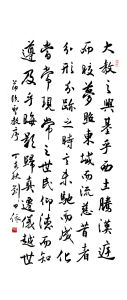 大教之興基乎西土騰漢庭
而皎夢照東域而流慈昔者
分形分跡之時言未馳而成化
當常現常之世民仰德而知
遵及乎晦影歸真遷儀越世
聖教序 丁酉秋 劉